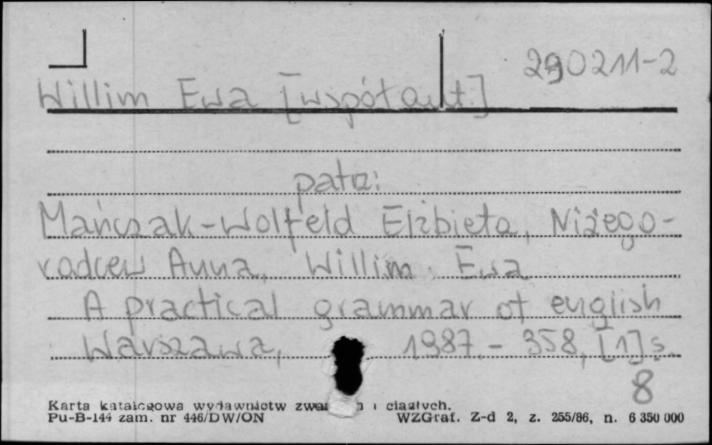 290211-2
Willim Ewa [współaut.]
patrz:
Mańczak-Wolfeld Elżbieta, Niżego-
rodcew Anna, Willim Ewa
A practical grammar of english
Warszawa, 1987. - 358, [1] s.
8
Karta katalogowa wydawnictw i ciągłych.
Pu-B-144 zam. nr 446/DW/ON WZGraf. Z-d 2, z. 255/86, n. 6 350 000